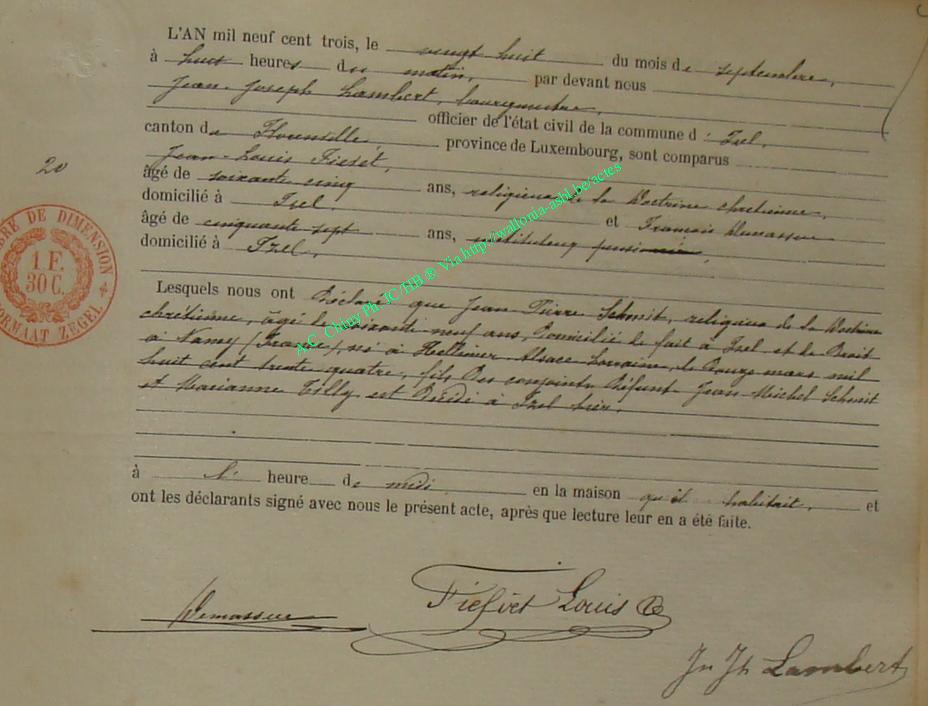 L'AN mil neuf cent trois, le vingt huit du mois de septembre,
à huit heures du matin, par devant nous
Jean-Joseph Lambert, bourgmestre,
officier de l'état civil de la commune d'Izel,
canton de Florenville, province de Luxembourg, sont comparus
Jean-Louis
20
âgé de soixante cinq ans, religieux de la Doctrine chrétienne,
domicilié à Izel, et François Demasseur
âgé de cinquante sept ans, instituteur pensionné,
domicilié à Izel,
Lesquels nous ont Déclaré que Jean-Pierre Schmit, religieux de la Doctrine
chrétienne, âgé de soixante neuf ans, Domicilié de fait à Izel et de Droit
à Nancy (France), né à Hellimer Alsace-Lorraine, le Douze mars mil
huit cent trente quatre, fils des conjoints Défunts Jean-Michel Schmit
et Marianne Tilly, est Décédé à Izel hier,
à l' heure de midi en la maison qu'il habitait, et
ont les déclarants signé avec nous le présent acte, après que lecture leur en a été faite.
Fiefvet Louis
Jn Jh Lambert
TIMBRE DE DIMENSION
1 F.
30 C.
FORMAAT ZEGEL
A.C. Chiny Ph. JC/HB ® Via http://wallonia-asbl.be/actes